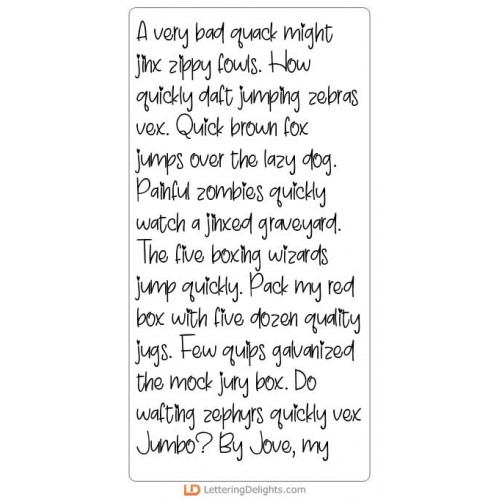 A very bad quack might
jinx zippy fowls. How
quickly daft jumping zebras
vex. Quick brown fox
jumps over the lazy dog.
Painful zombies quickly
watch a jinxed graveyard.
The five boxing wizards
jump quickly. Pack my red
box with five dozen quality
jugs. Few quips galvanized
the mock jury box. Do
wafting zephyrs quickly vex
Jumbo? By Jove, my
LD LetteringDelights.com